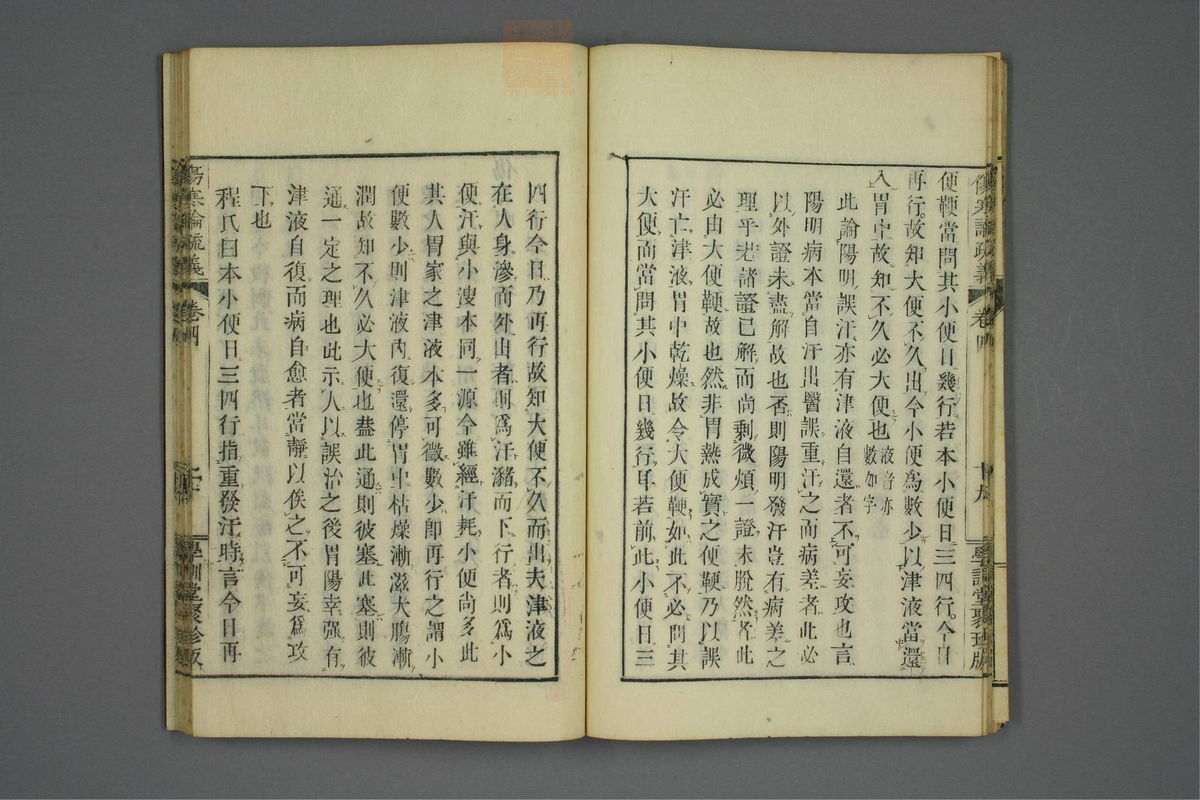 傷寒論疏義 卷四 十九 學訓堂聚珍版
便鞕當問其小便日幾行若本小便日三四行今日
再行故知大便不久出今小便爲數少以津液當還
入胃中故知不久必大便也 液音亦 數如字
此論陽明誤汗亦有津液自還者不可妄攻也言
陽明病本當自汗出醫誤重汗之而病差者此必
以外證未盡解故也否則陽明發汗豈有病差之
理乎若諸證已解而尚剩微煩一證未脫然者此
必由大便鞕故也然非胃熱成實之便鞕乃以誤
汗亡津液胃中乾燥故令大便鞕如此不必問其
大便而當問其小便日幾行耳若前此小便日三
四行今日乃再行故知大便不久而出夫津液之
在人身滲而外出者則爲汗瀦而下行者則爲小
便汗與小溲本同一源今雖經汗耗小便尚多此
其人胃家之津液本多可徵數少卽再行之謂小
便數少則津液內復還停胃中枯燥漸滋大腸漸
潤故知不久必大便也葢此通則彼塞此塞則彼
通一定之理也此示人以誤治之後胃陽幸强有
津液自復而病自愈者當靜以俟之不可妄爲攻
下也
程氏曰本小便日三四行指重發汗時言今日再
傷寒論疏義 卷四 二十 學訓堂聚珍版